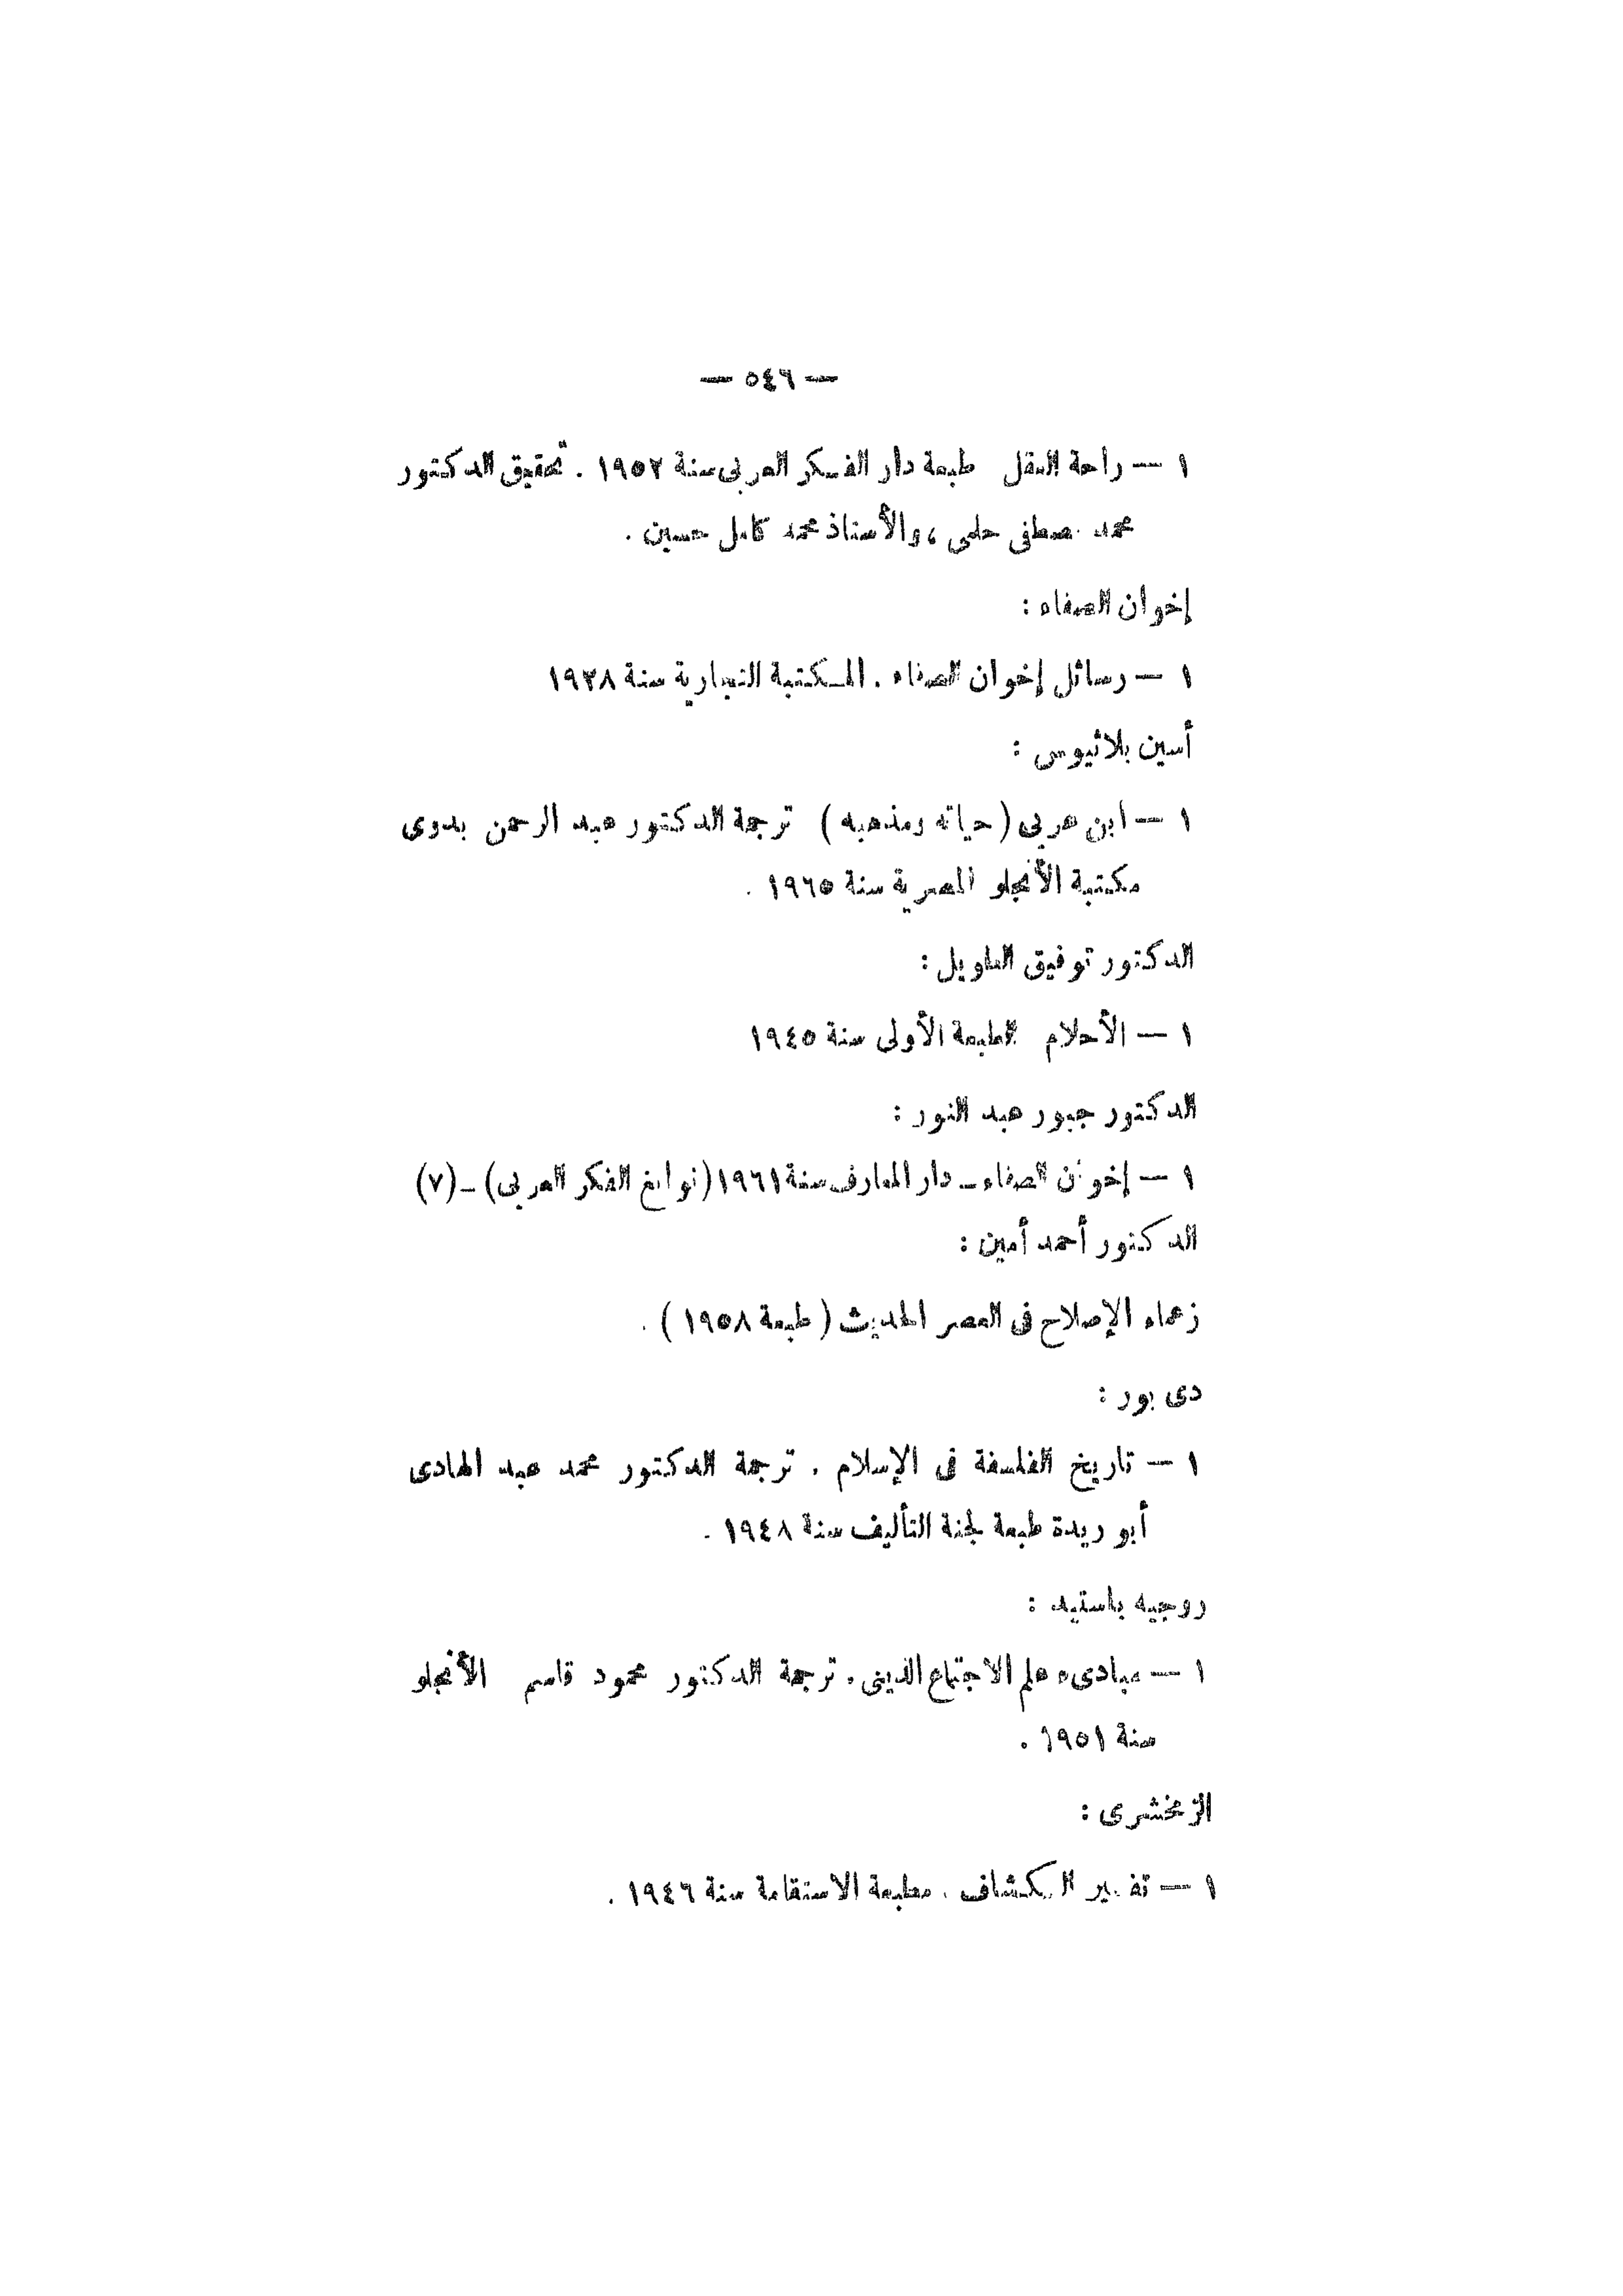 — ٥٤٦ —
١ — راحة العقل طبعة دار الفكر العربى سنة ١٩٥٢ . تحقيق الدكتور
محمد مصطفى حلمى ، والأستاذ محمد كامل حسين .
إخوان الصفاء :
١ — رسائل إخوان الصفاء . المكتبة التجارية سنة ١٩٢٨
أسين بلاثيوس :
١ — ابن عربى ( حياته ومذهبه ) ترجمة الدكتور عبد الرحمن بدوى
مكتبة الأنجلو المصرية سنة ١٩٦٥ .
الدكتور توفيق الطويل :
١ — الأحلام الطبعة الأولى سنة ١٩٤٥
الدكتور جبور عبد النور :
١ — إخوان الصفاء – دار المعارف سنة ١٩٦١ ( نوابغ الفكر العربى ) – (٧)
الدكتور أحمد أمين :
زعماء الإصلاح فى العصر الحديث ( طبعة ١٩٥٨ ) .
دى بور :
١ — تاريخ الفلسفة فى الإسلام . ترجمة الدكتور محمد عبد الهادى
أبو ريدة طبعة لجنة التأليف سنة ١٩٤٨ .
روجيه باستيد :
١ — مبادىء علم الاجتماع الدينى . ترجمة الدكتور محمود قاسم الأنجلو
سنة ١٩٥١ .
الزمخشرى :
١ — تفسير الكشاف . مطبعة الاستقامة سنة ١٩٤٦ .